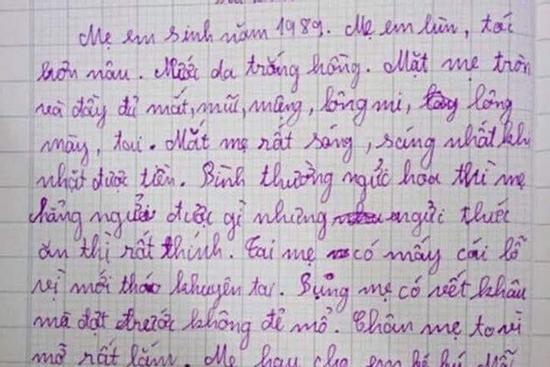 Mẹ em sinh năm 1989. Mẹ em lùn, tóc
hơn nâu. Nước da trắng hồng. Mặt mẹ tròn
và đầy đủ mắt, mũi, miệng, lông mi, lông
mày, tai. Mắt mẹ rất sáng, sáng nhất khi
nhặt được tiền. Bình thường ngửi hoa thì mẹ
chẳng ngửi được gì nhưng ngửi thức
ăn thì rất thính. Tai mẹ có mấy cái lỗ
vì mới tháo khuyên tai. Bụng mẹ có vết khâu
mà đợt trước không đẻ mổ. Chân mẹ to vì
mỡ rất lắm. Mẹ hay cho em